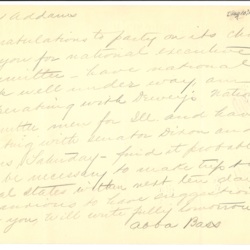 Addams
ratulations to party on its ch
you for national executive
mmittee - have national
k well under way am
perating with Dewey's Natio
mittee men for Ill and hav
ting with senator Dixon an
Saturday - find it probab
be necessary to make trip to
al states in the next ten da
anxious to have
you will write fully tomorrow
Abba Bass